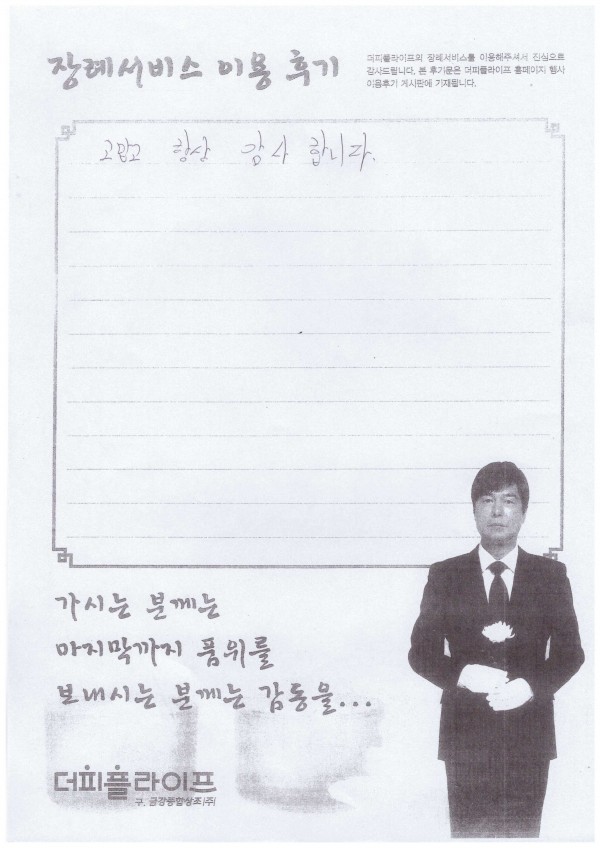 장례서비스 이용 후기
더피플라이프의 장례서비스를 이용해주셔서 진심으로
감사드립니다. 본 후기문은 더피플라이프 홈페이지 행사
이용후기 게시판에 기재됩니다.
고맙고 항상 감사 합니다.
가시는 분께는
마지막까지 품위를
보내시는 분께는 감동을...
더피플라이프
구. 금강종합상조(주)